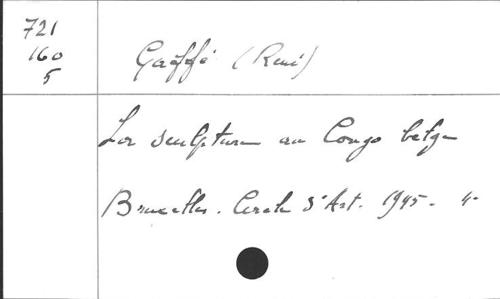 721
160
5
Gaffé (René)
La sculpture au Congo belge
Bruxelles. Cercle d'Art. 1945. 4°